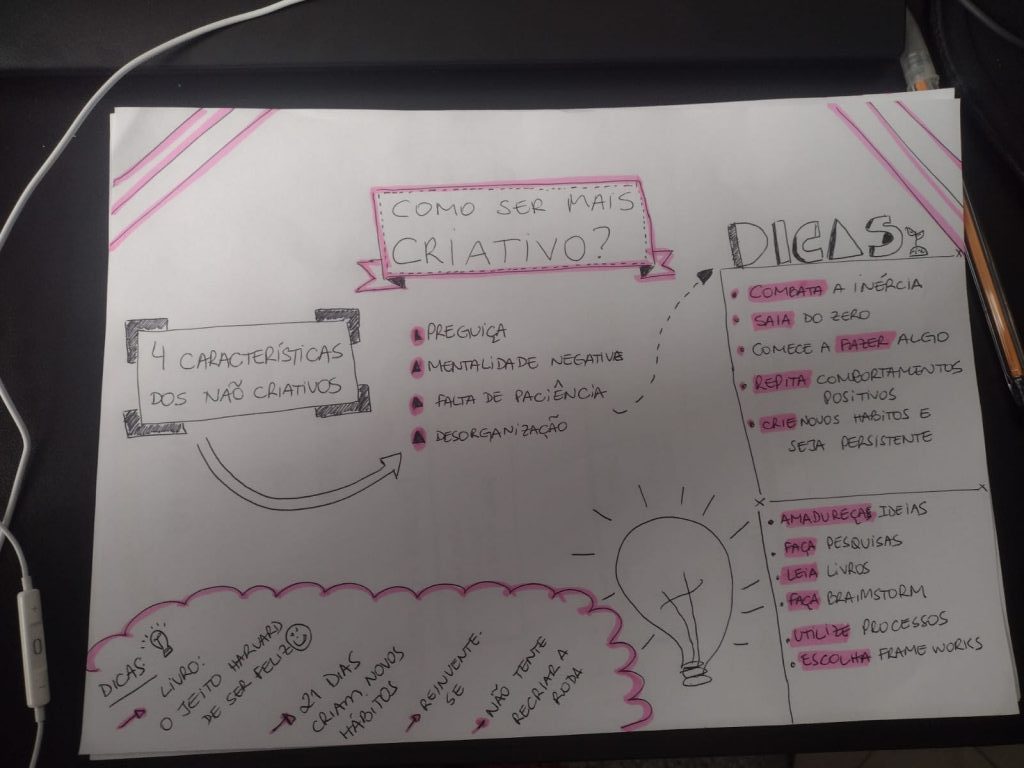 COMO SER MAIS
CRIATIVO?
4 CARACTERÍSTICAS
DOS NÃO CRIATIVOS
PREGUIÇA
MENTALIDADE NEGATIVA
FALTA DE PACIÊNCIA
DESORGANIZAÇÃO
DICAS
COMBATA A INÉRCIA
SAIA DO ZERO
COMECE A FAZER ALGO
REPITA COMPORTAMENTOS
POSITIVOS
CRIE NOVOS HÁBITOS E
SEJA PERSISTENTE
AMADUREÇA IDEIAS
FAÇA PESQUISAS
LEIA LIVROS
FAÇA BRAIMSTORM
UTILIZE PROCESSOS
ESCOLHA FRAME WORKS
DICAS
LIVRO:
O JEITO HARVARD
DE SER FELIZ
21 DIAS
CRIAM NOVOS
HÁBITOS
REINVENTE-
SE
NÃO TENTE
RECRIAR A
RODA